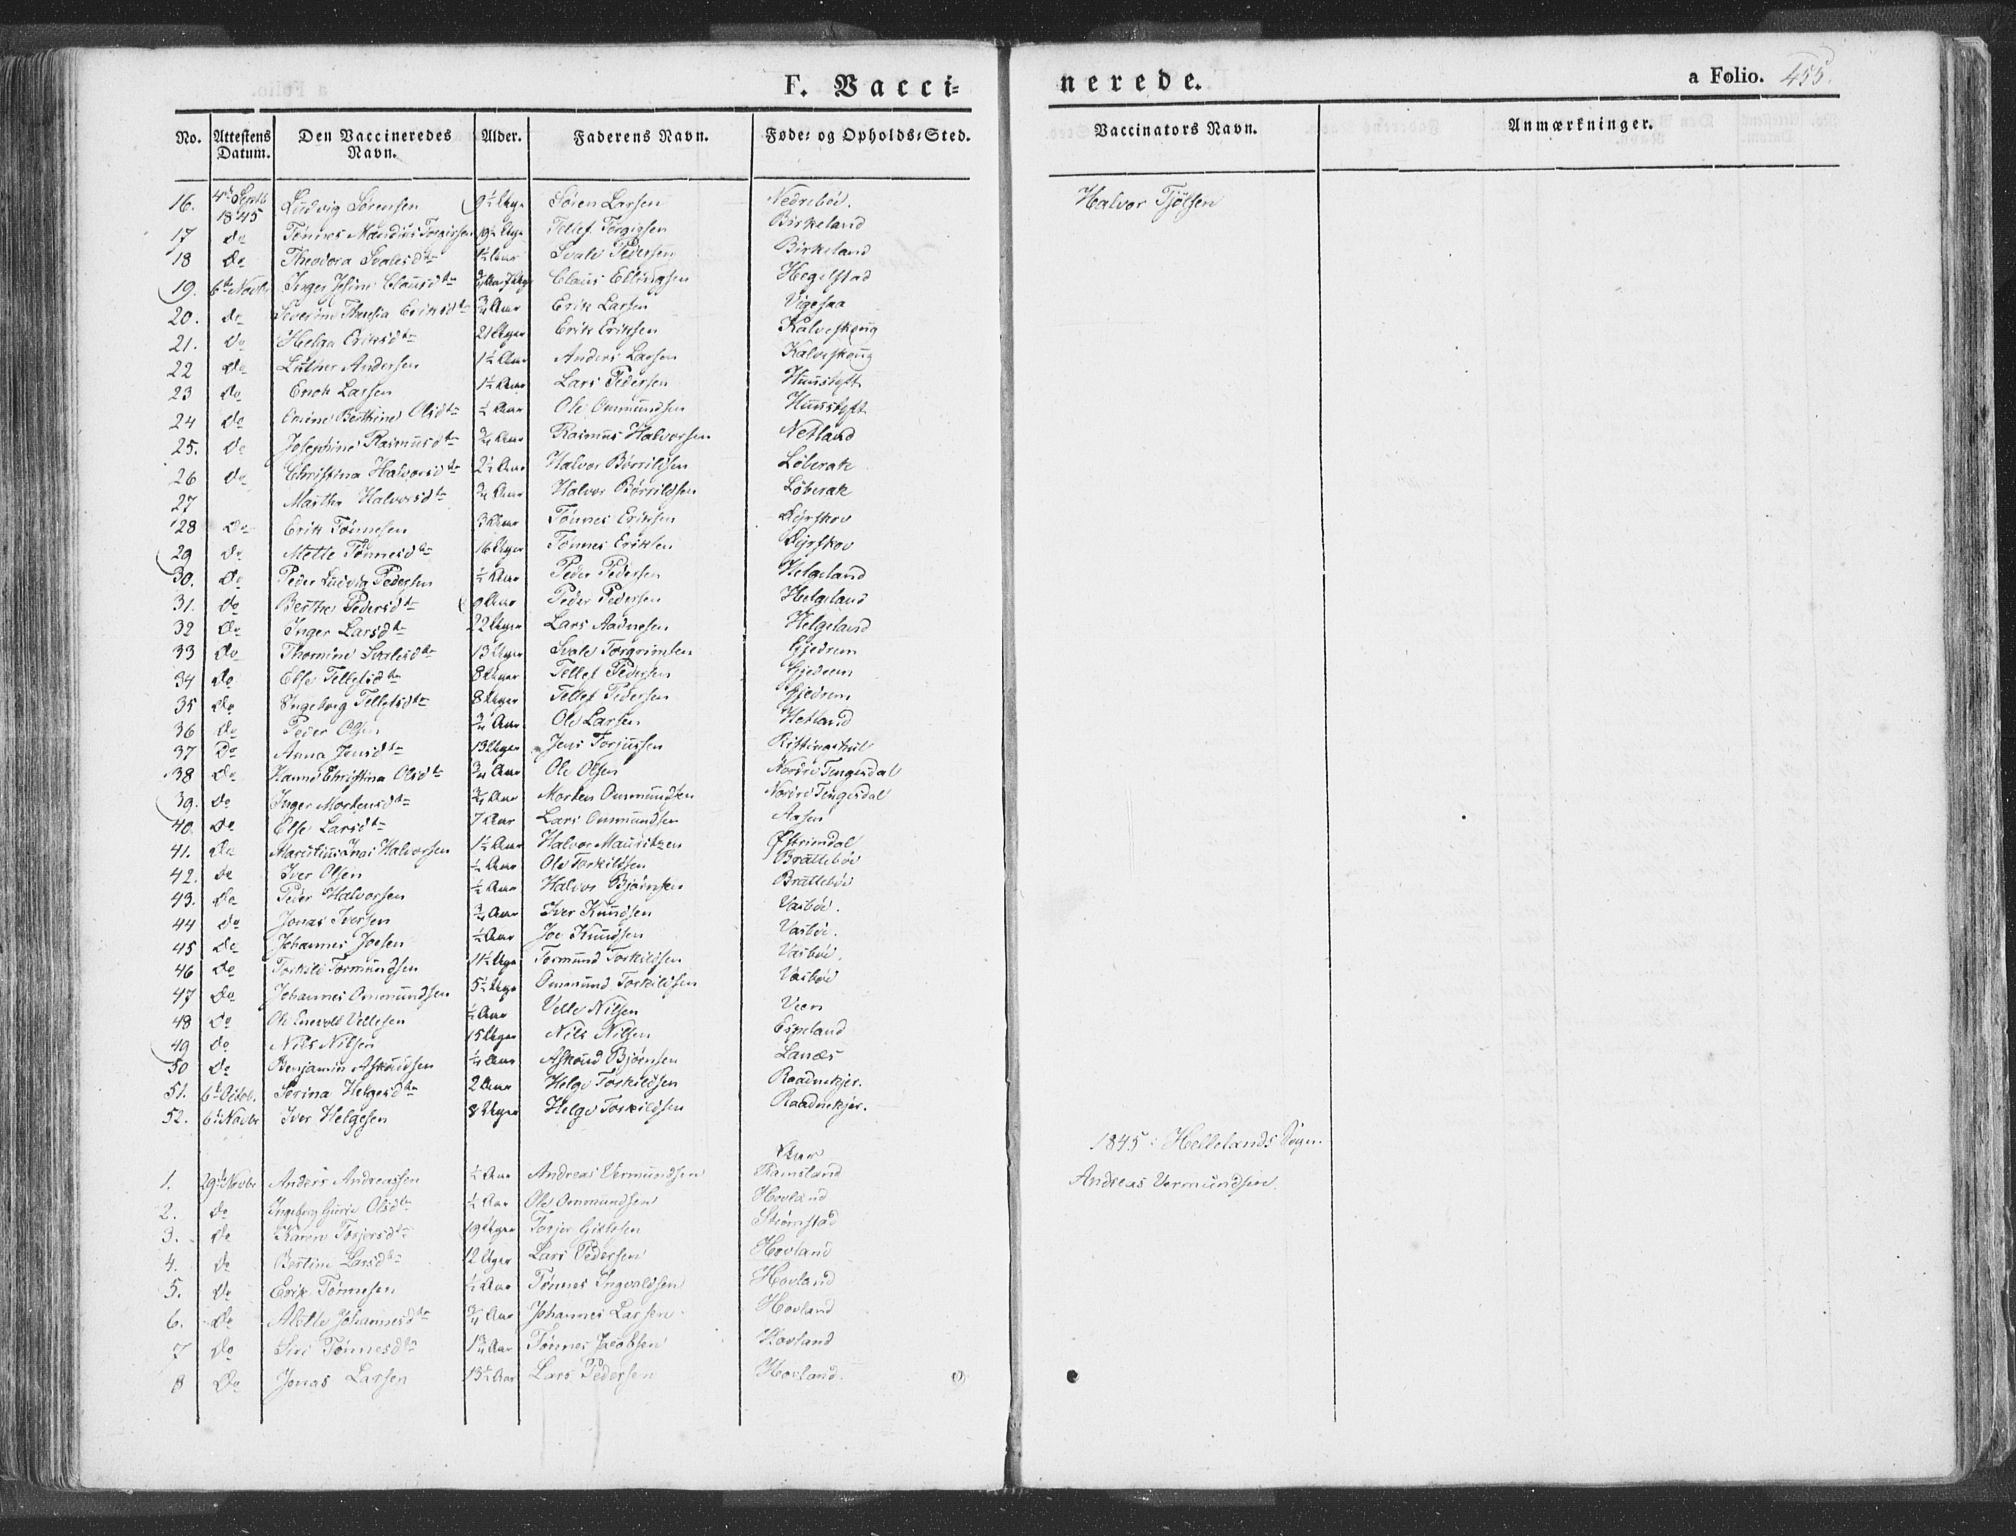 F. Vacci-
nerede.
a Folio. 455.
No. Attestens Datum. Den Vaccineredes Navn. Alder. Faderens Navn. Føde- og Opholds-Sted. Vaccinators Navn. Anmærkninger.
16. 4de Septb 1845 Ludvig Sørensen Søren Larsen Nedrebøe. Halvor Tjölsen
17 do Tønnes Mandius Torgissen Tellef Torgissen Birkeland
18 do Theodora Svalesdtr 1½ Aar Svale Pedersen Birkeland
19. 6te Novbr Inger Claus Ellingsen Hegelstad
20. do ¾ Aar Erik Larsen Vigesaa
21. do Helga Eriksdtr 21 Uger Erik Eriksen Kalveskoug
22 do Luther Andersen 1½ Aar Anders Larsen Kalveskoug
23 do Enok Larsen 1½ Aar Lars Pedersen Huustoft
24 do Bertine Olsdtr ½ Aar Ole Ommundsen Huustoft
25. do Josephine Rasmusdtr ¾ Aar Rasmus Halvorsen Netland
26 do Christina Halvorsdtr 2½ Aar Halvor Børrildsen Løberak
27 Marthe Halvorsdtr ¾ Aar Halvor Børrildsen Løberak
28 do Erik Tønnesen 3 Aar Tønnes Eriksen Dyrskov
29 do Mette Tønnesdtr 16 Uger Tønnes Eriksen Dyrskov
30. do Peder Ludvig Pedersen ½ Aar Peder Pedersen Helgeland
31. do Berthe Pedersdtr 9 Aar Peder Pedersen Helgeland
32 do Inger Larsdtr 22 Uger Lars Aadnesen Helgeland
33 do Thomine Svalesdtr 13 Uger Svale Torgrimsen Gjedrem
34 do Else Tellefsdtr 8 Uger Tellef Pedersen Gjedrem
35 do Ingeborg Tellefsdtr 8 Uger Tellef Pedersen Gjedrem
36 do Peder Olsen ¾ Aar Ole Larsen Hetland
37 do Anna Jensdtr 13 Uger Jens Torjussen
38 do Hanne Christina Olsdtr ¾ Aar Ole Olsen Nordre Tengesdal
39. do Inger Mortensdtr ¾ Aar Morten Ommundsen Nordre Tengesdal
40. do Else Larsdtr 7 Aar Lars Ommundsen Aasen
41. do Halvorsen 1½ Aar Halvor Mauritzen Østrimdal
42. do Iver Olsen ½ Aar Ole Torkildsen Brattebøe
43. do Peder Halvorsen ½ Aar Halvor Bjørnsen Brattebøe
44 do Jonas Iversen ¾ Aar Iver Knudsen Vasbøe.
45 do Johannes Joesen ½ Aar Joe Knudsen Vasbøe.
46 do Torkild Tormundsen 11½ Uge Tormund Torkildsen Vasbøe.
47 do Johannes Ommundsen 5½ Uge Ommund Torkildsen Vasbøe
48 do Ole Enevold Vellesen ½ Aar Velle Nilsen Veen
49 do Nils Nilsen 15 Uger Nils Nilsen Espeland
50 do Benjamin Askoudsen ¼ Aar Askoud Bjørnsen Lanæs
51. 6te Octob. Serina Helgesdtr 2 Aar Helge Torkildsen Raadnekjer.
52. 6te Novbr Iver Helgesen 8 Uger Helge Torkildsen Raadnekjer.
1845: Hellelands Sogn.
1. 29de Novbr Anders Andreassen ½ Aar Andreas Vermundsen Ramsland Andreas Vermundsen.
2. do Ingeborg Olsdtr ½ Aar Ole Ommundsen Hovland
3. do Karen Torjersdtr 19 Uger Torjer Strømstad
4. do Bertine Larsdtr 12 Uger Lars Pedersen Hovland
5. do Erik Tønnesen ½ Aar Tønnes Ingvaldsen Hovland
6. do Johannesdtr ¾ Aar Johannes Larsen Hovland
7 do Siri Tønnesdtr Tønnes Jacobsen Hovland
8 do Jonas Larsen 13½ Aar Lars Pedersen Hovland.